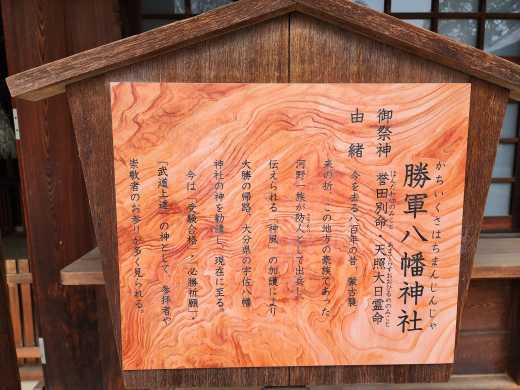 かちいくさはちまんじんじゃ
勝軍八幡神社
御祭神 誉田別命・天照大日霊命
由緒 今を去る八百年の昔、蒙古襲
来の折、この地方の豪族であった
河野一族が防人として出兵し、
伝えられる「神風」の加護により
大勝の帰路、大分県の宇佐八幡
神社の神を勧請し、現在に至る。
今は「受験合格」・「必勝祈願」・
「武道上達」の神として、参拝者や
崇敬者のお参りが多く見られる。